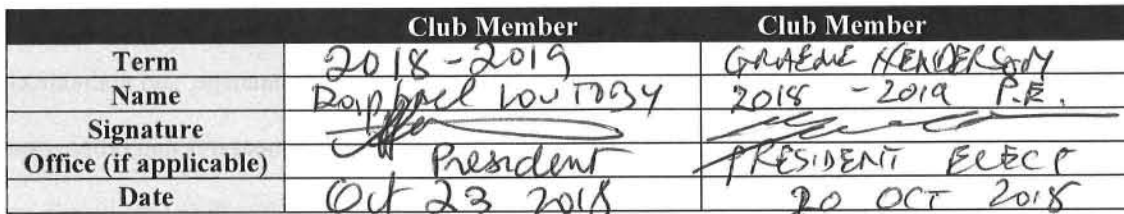 Club Member Club Member
Term 2018-2019 GRAEME HENDERSON
Name Raphael 2018 -2019 P.E.
Signature
Office (if applicable) President PRESIDENT ELECT
Date Oct 23 2018 20 OCT 2018